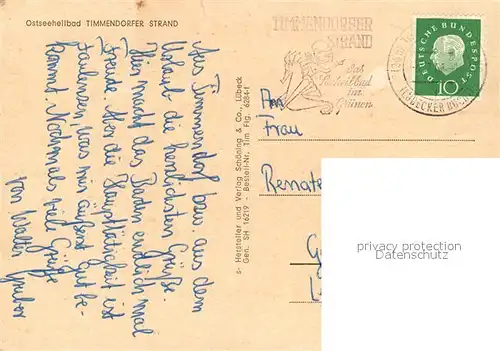 Ostseeheilbad TIMMENDORFER STRAND
Aus Timmendorf bzw. aus dem
Urlaub die herzlichsten Grüße.
Hier macht das Baden endlich mal
Freude. Aber die Haupttätigkeit ist
Faulenzen, was mir äußerst gut be-
kommt. Nochmals viele Grüße
von Walter Gruber
s- Hersteller und Verlag Schöning & Co., Lübeck
Gen. SH 16219 - Bestell-Nr. Tim Flg. 6284-I
TIMMENDORFER
STRAND
das
Ostseeheilbad
im
Grünen
LÜBECKER BUCHT
DEUTSCHE BUNDESPOST
10
An
Frau
Renate
privacy protection
@Ansichtskartenversand.com